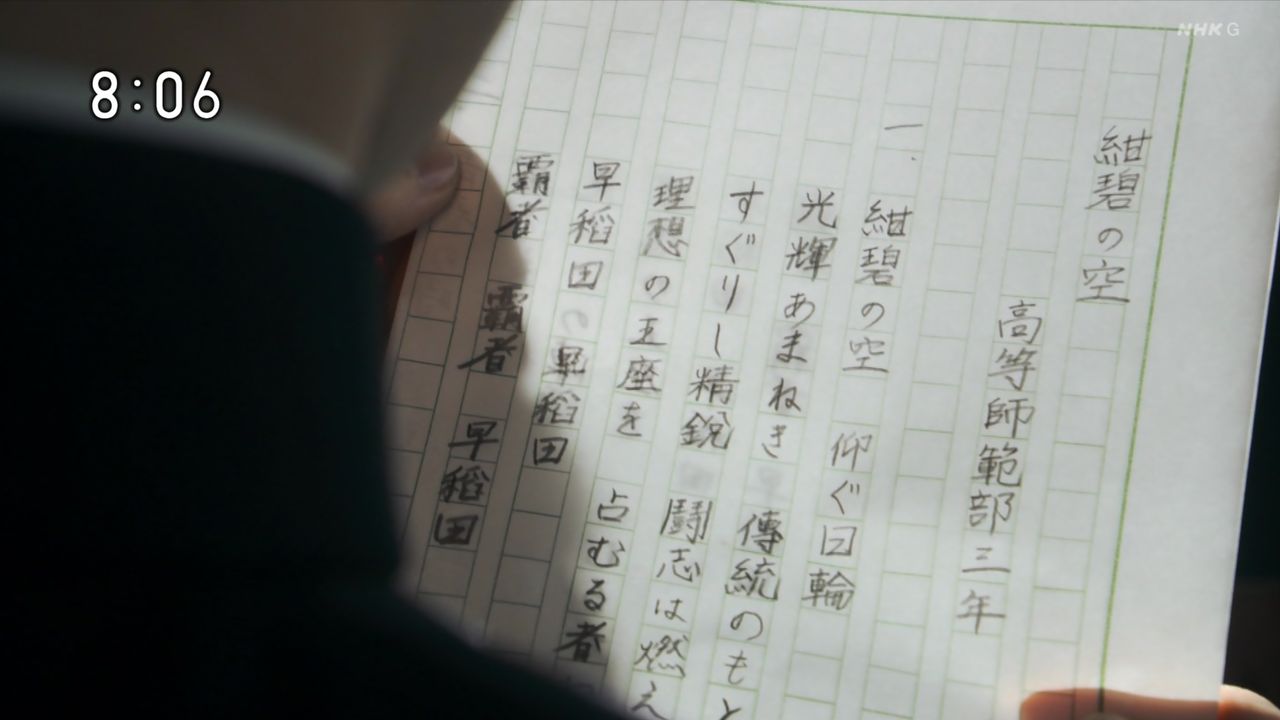 8:06
NHK G
紺碧の空
高等師範部三年
一、
紺碧の空 仰ぐ日輪
光輝あまねき 傳統のもと
すぐりし精鋭 鬪志は燃え
理想の王座を 占むる者
早稲田 早稲田
覇者 覇者 早稲田